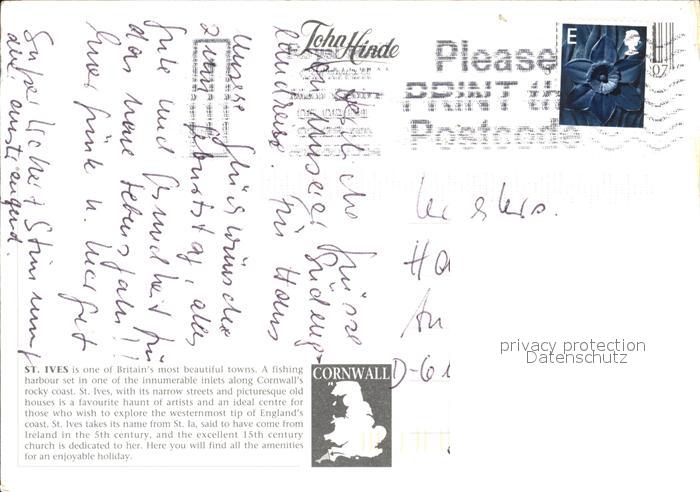 John Hinde
Please
PRINT th
Postcode
E
07
Herzliche Grüsse
von unserer Südeng-
landreise. für Hans
Unsere Glückwünsche
zum Geburtstag, alles
Gute und Gesundheit für
das neue Lebensjahr!!
Margit
Gute Stimmung
D-61
privacy protection
Datenschutz
ST. IVES is one of Britain's most beautiful towns. A fishing
harbour set in one of the innumerable inlets along Cornwall's
rocky coast. St. Ives, with its narrow streets and picturesque old
houses is a favourite haunt of artists and an ideal centre for
those who wish to explore the westernmost tip of England's
coast. St. Ives takes its name from St. Ia, said to have come from
Ireland in the 5th century, and the excellent 15th century
church is dedicated to her. Here you will find all the amenities
for an enjoyable holiday.
CORNWALL